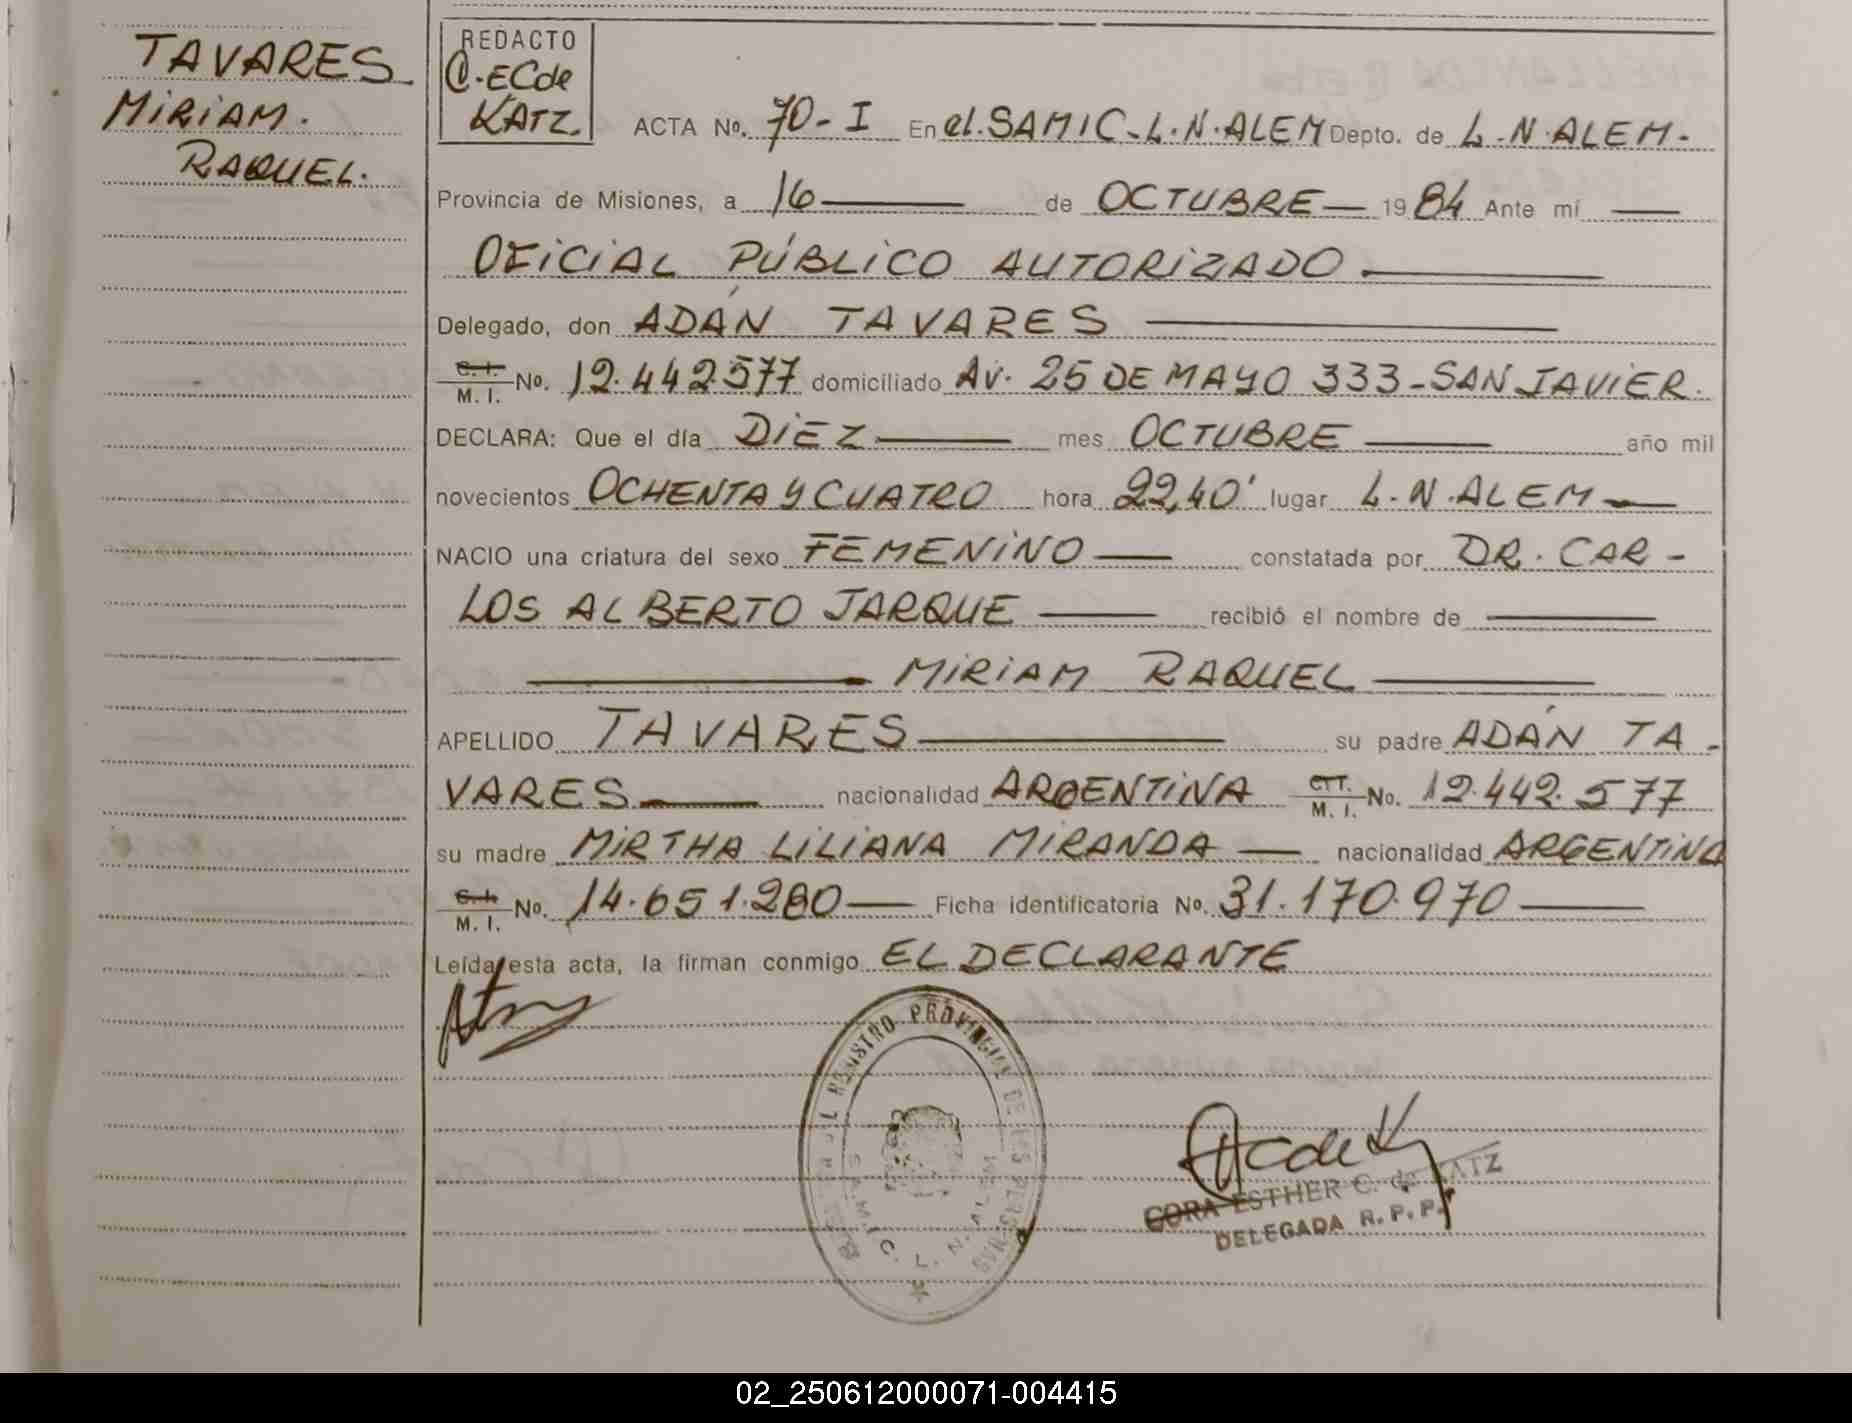 TAVARES
MIRIAM.
RAQUEL.
REDACTO
C.ECde
KATZ.
ACTA No. 70-I En el. SAMIC-L.N.ALEM Depto. de L.N.ALEM-
Provincia de Misiones, a 16 de OCTUBRE 1984 Ante mí
OFICIAL PÚBLICO AUTORIZADO
Delegado, don ADÁN TAVARES
C.I. M.I. No. 12.442.577 domiciliado AV. 25 DE MAYO 333-SAN JAVIER.
DECLARA: Que el día DIEZ mes OCTUBRE año mil
novecientos OCHENTA Y CUATRO hora 22,40' lugar L.N.ALEM
NACIO una criatura del sexo FEMENINO constatada por DR. CAR-
LOS ALBERTO JARQUE recibió el nombre de
MIRIAM RAQUEL
APELLIDO TAVARES su padre ADÁN TA-
VARES nacionalidad ARGENTINA M.I. No. 12.442.577
su madre MIRTHA LILIANA MIRANDA nacionalidad ARGENTINA
C.I. M.I. No. 14.651.280 Ficha identificatoria No. 31.170.970
Leída esta acta, la firman conmigo EL DECLARANTE
REGISTRO PROVINCIAL DE LAS PERSONAS
S.A.M.I.C. L.N.ALEM
CORA ESTHER C. de KATZ
DELEGADA R.P.P.
02_250612000071-004415